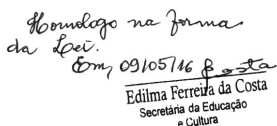 Homologo na forma
da Lei.
Em, 09/05/16 Costa
Edilma Ferreira da Costa
Secretária da Educação
e Cultura